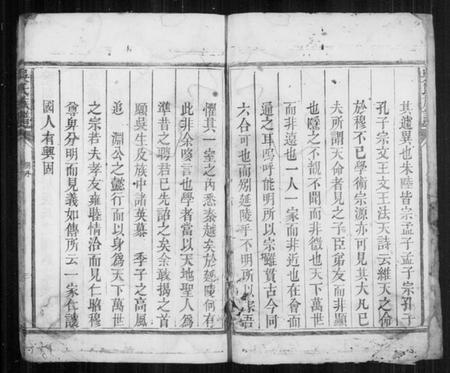 其遽異也朱陸皆宗孟子孟子宗孔子
孔子宗文王文王法天詩云維天之命
於穆不已學術宗源亦可見其大凡已
夫所謂天命者見之子臣弟友而非顯
也隱之不覩不聞而非微也天下萬世
而非遠也一人一家而非近也在會而
通之耳嗚呼能明所以宗雖貫古今同
六合可也而矧延陵乎不明所以宗語
懼其一室之內悉秦越矣於延陵何有
此非余啽言也學者當以天地聖人為
準昔之聘君已先詔之矣余敢揚之首
願吳生及族中諸英慕 季子之高風
追 淵公之懿行而以身為天下萬世
之宗若夫孝友雍睦情洽而見仁昭穆
尊卑分明而見義如傳所云一家仁讓
國人有興固